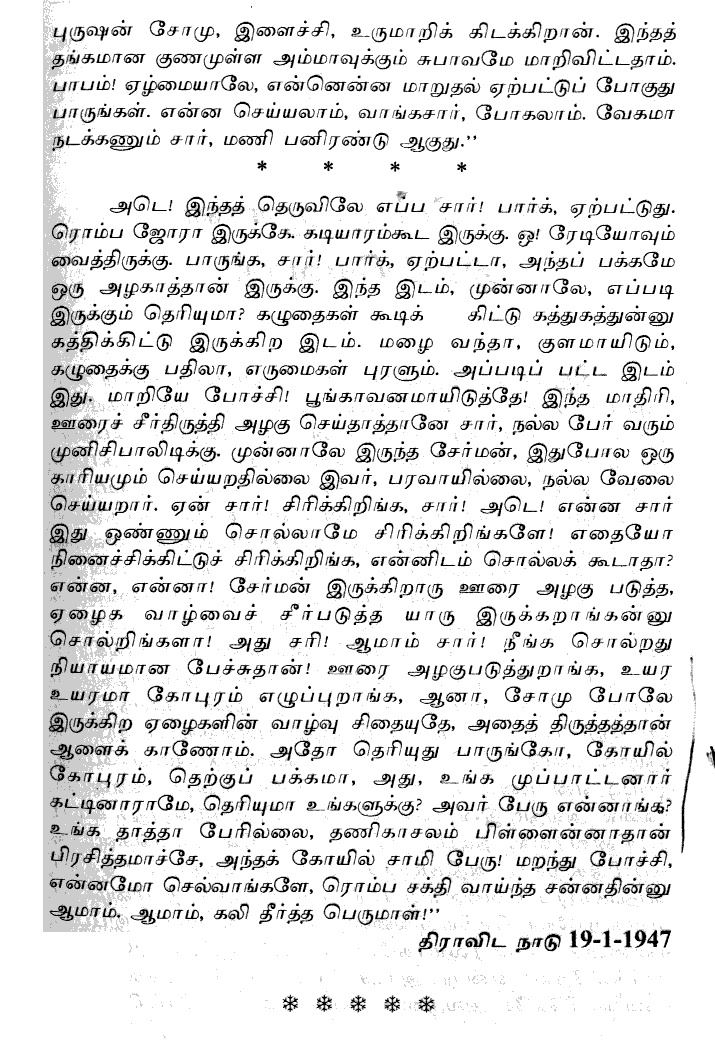 புருஷன் சோமு, இளைச்சி, உருமாறிக் கிடக்கிறான். இந்தத்
தங்கமான குணமுள்ள அம்மாவுக்கும் சுபாவமே மாறிவிட்டதாம்.
பாபம்! ஏழ்மையாலே, என்னென்ன மாறுதல் ஏற்பட்டுப் போகுது
பாருங்கள். என்ன செய்யலாம், வாங்கசார், போகலாம். வேகமா
நடக்கணும் சார், மணி பனிரண்டு ஆகுது.''
* * * *
அடெ! இந்தத் தெருவிலே எப்ப சார்! பார்க், ஏற்பட்டுது.
ரொம்ப ஜோரா இருக்கே. கடியாரம்கூட இருக்கு. ஒ! ரேடியோவும்
வைத்திருக்கு. பாருங்க, சார்! பார்க், ஏற்பட்டா, அந்தப் பக்கமே
ஒரு அழகாத்தான் இருக்கு. இந்த இடம், முன்னாலே, எப்படி
இருக்கும் தெரியுமா? கழுதைகள் கூடிக் கிட்டு கத்துகத்துன்னு
கத்திக்கிட்டு இருக்கிற இடம். மழை வந்தா, குளமாயிடும்,
கழுதைக்கு பதிலா, எருமைகள் புரளும். அப்படிப் பட்ட இடம்
இது. மாறியே போச்சி! பூங்காவனமாயிடுத்தே! இந்த மாதிரி,
ஊரைச் சீர்திருத்தி அழகு செய்தாத்தானே சார், நல்ல பேர் வரும்
முனிசிபாலிடிக்கு. முன்னாலே இருந்த சேர்மன், இதுபோல ஒரு
காரியமும் செய்யறதில்லை இவர், பரவாயில்லை, நல்ல வேலை
செய்யறார். ஏன் சார்! சிரிக்கிறிங்க, சார்! அடெ! என்ன சார்
இது ஒண்ணும் சொல்லாமே சிரிக்கிறிங்களே! எதையோ
நினைச்சிக்கிட்டுச் சிரிக்கிறிங்க, என்னிடம் சொல்லக் கூடாதா?
என்ன, என்னா! சேர்மன் இருக்கிறாரு ஊரை அழகு படுத்த,
ஏழைக வாழ்வைச் சீர்படுத்த யாரு இருக்கறாங்கன்னு
சொல்றிங்களா! அது சரி! ஆமாம் சார்! நீங்க சொல்றது
நியாயமான பேச்சுதான்! ஊரை அழகுபடுத்துறாங்க, உயர
உயரமா கோபுரம் எழுப்புறாங்க, ஆனா, சோமு போலே
இருக்கிற ஏழைகளின் வாழ்வு சிதையுதே, அதைத் திருத்தத்தான்
ஆளைக் காணோம். அதோ தெரியுது பாருங்கோ, கோயில்
கோபுரம், தெற்குப் பக்கமா, அது, உங்க முப்பாட்டனார்
கட்டினாராமே, தெரியுமா உங்களுக்கு? அவர் பேரு என்னாங்க?
உங்க தாத்தா பேரில்லை, தணிகாசலம் பிள்ளைன்னாதான்
பிரசித்தமாச்சே, அந்தக் கோயில் சாமி பேரு! மறந்து போச்சி,
என்னமோ செல்வாங்களே, ரொம்ப சக்தி வாய்ந்த சன்னதின்னு
ஆமாம். ஆமாம், கலி தீர்த்த பெருமாள்!''
திராவிட நாடு 19-1-1947